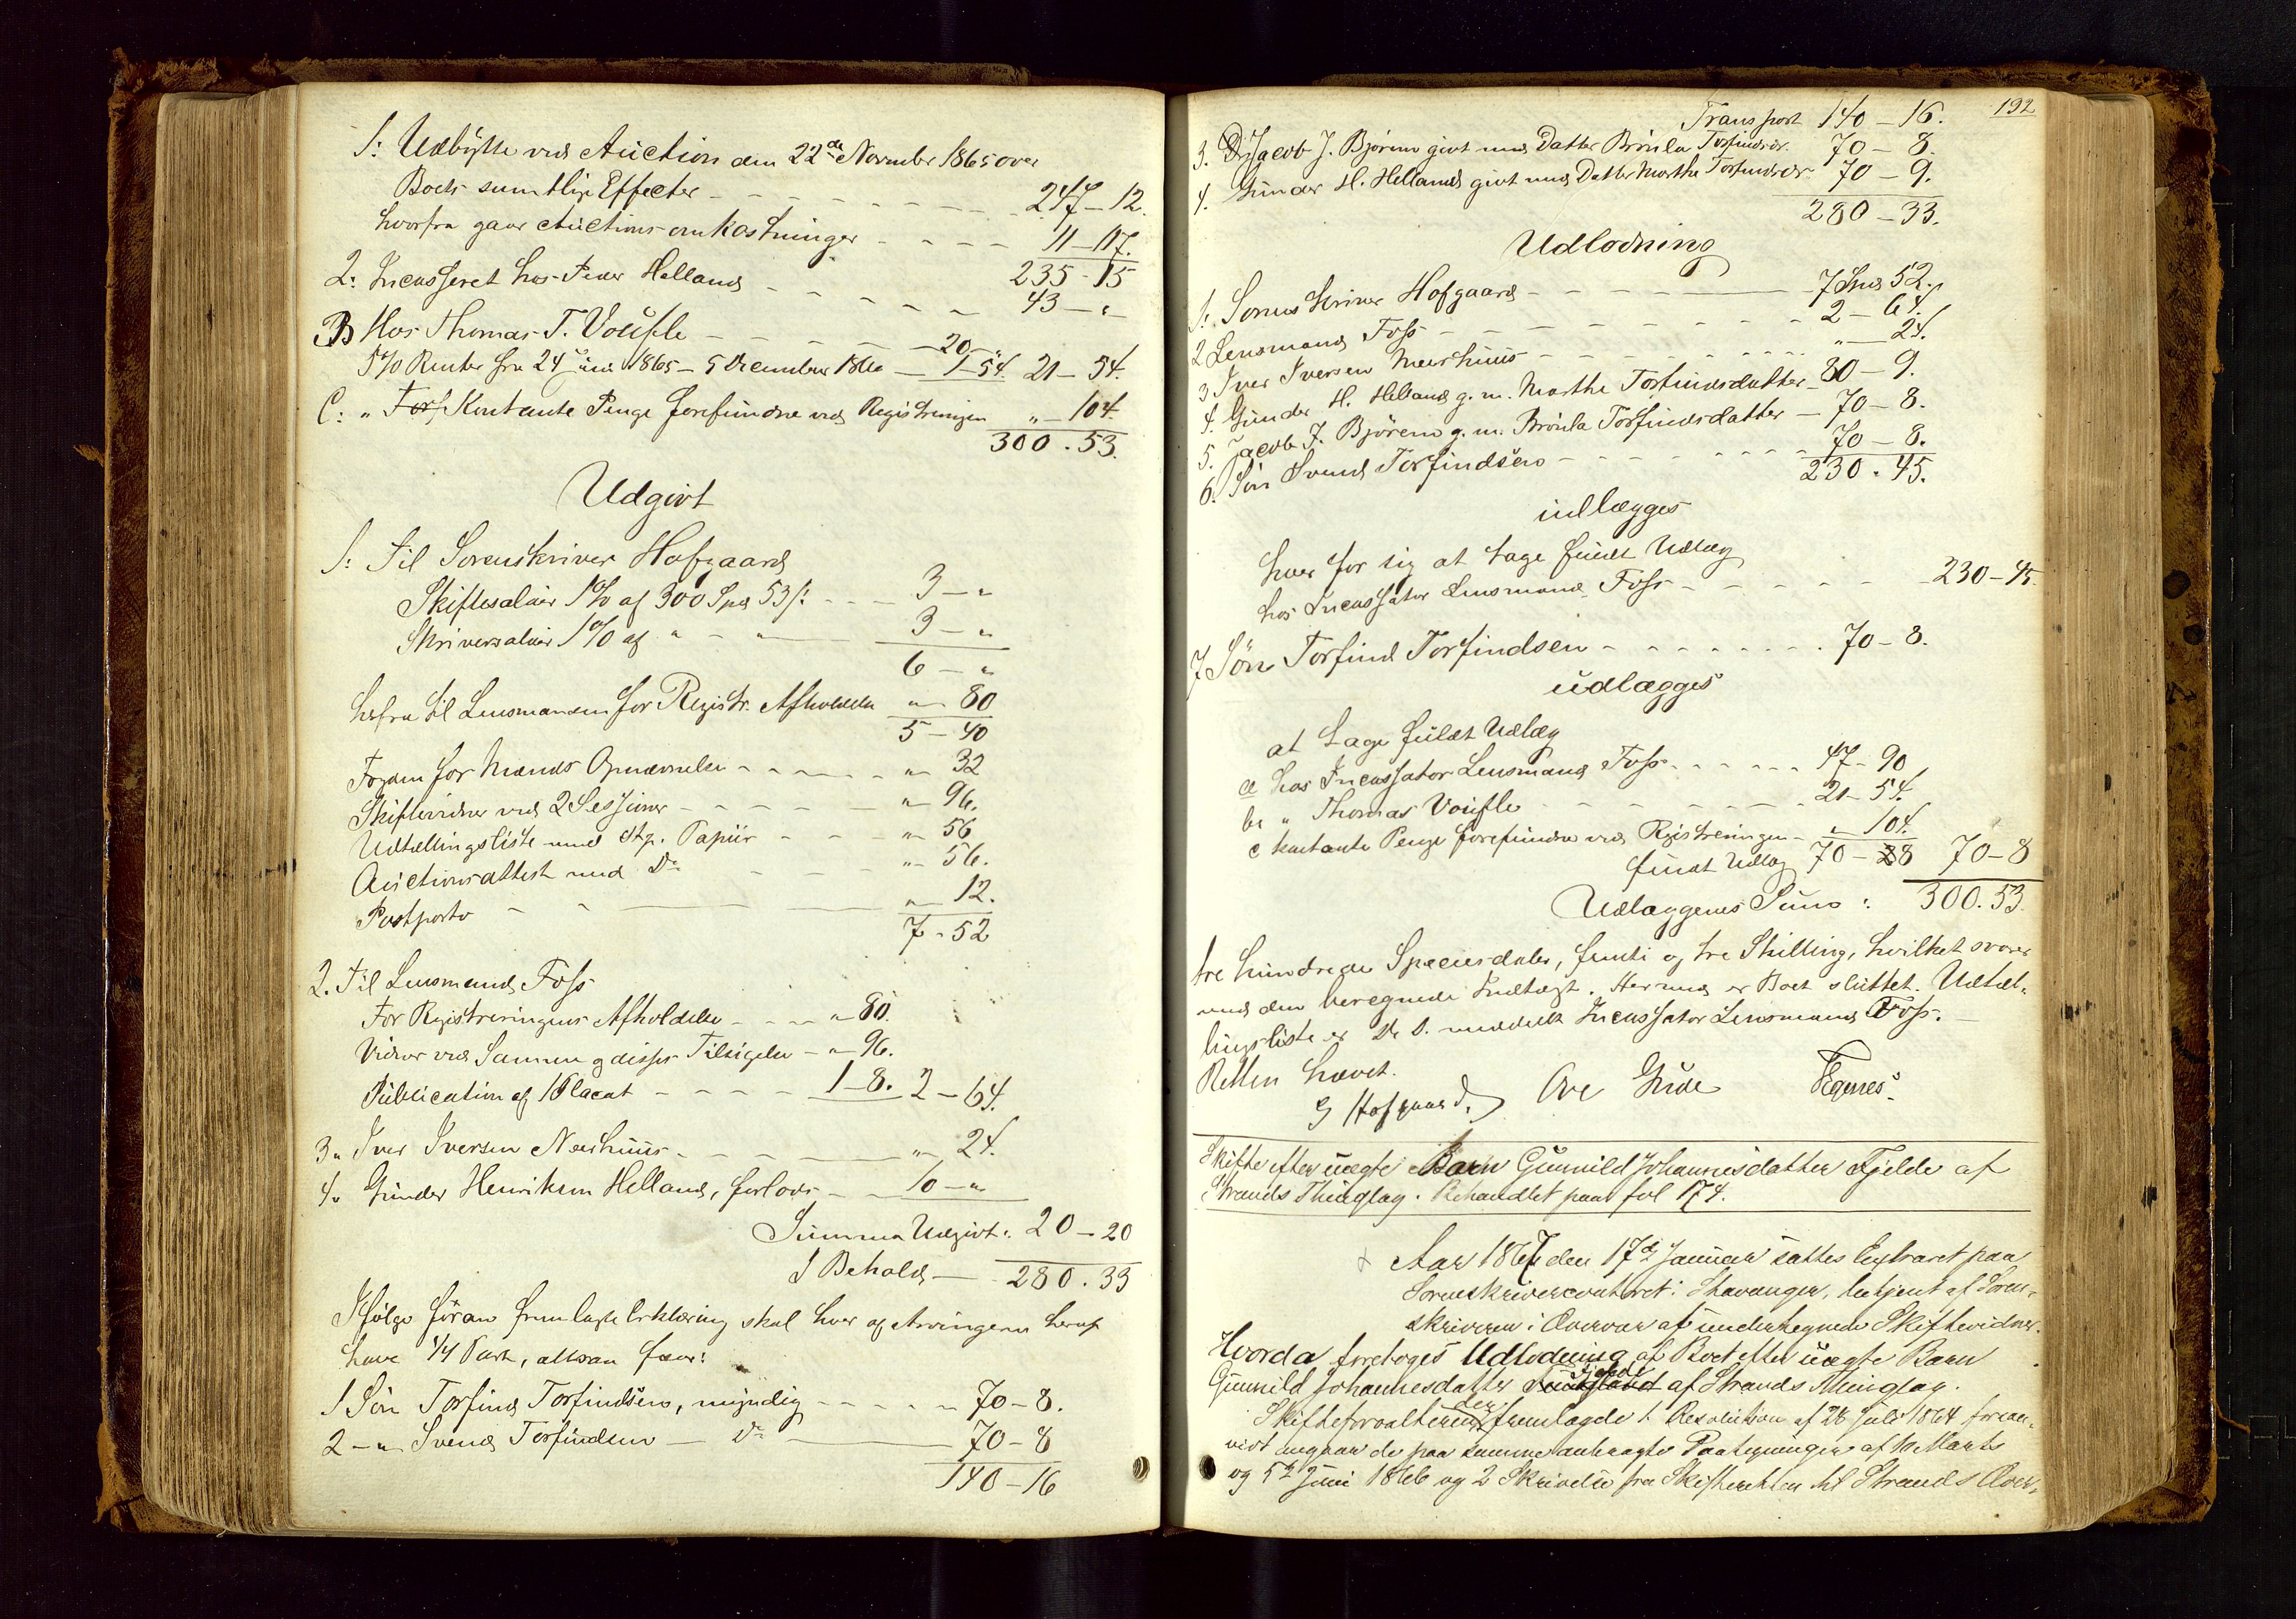 1: Udbytte ved Auction den 22de November 1865 over
Boets samtlige Effecter - - - - - - 247 - 12.
hvorfra gaar Auctionsomkostninger - - - - 11 - 117.
235 - 15
2: Incasseret hos Peder Helland - - - - - 43 - "
B Hos Thomas T. Voufle - - - - - 20 - "
5 % Renter fra 24 Juni 1865 - 5 December 1866 - 1 - 54 21 - 54.
C: " Kontante Penge forefundne ved Registreringen " - 104
300 . 53.
Udgivt
1: Til Sorenskriver Hofgaard
Skiftesalair 1 % af 300 Spd 53 s: - - - 3 - "
Skriversalair 1 % af " - " 3 - "
6 - "
herfra til Lensmanden for Registr. Afholdelse " - 80
5 - 40
Fogden for Mænds Opnævnelse - - - - " - 32
Skiftevidner ved 2 Sessioner - - - - " - 96.
Udtællingsliste med stp. Papiir - - - " - 56
Auctionsattest med Do - - - " - 56.
Postporto - - " - 12.
7 - 52
2. Til Lensmand Foss
For Registreringens Afholdelse - - - " - 80.
Vidner ved Samme og disses Tilsigelse - " - 96.
Publication af 1 Placat - - - - 1 - 8. 2 - 64.
3 " Iver Iversen Neerhuus - - - - " - 24.
4 " Gunder Henriksen Helland, forlods - - 10 - "
Summa Udgivt: 20 - 20
I Behold - 280 . 33
Ifølge foran fremlagte Erklæring skal hver af Arvingerne heraf
have 1/4 Part, altsaa faar:
1 Søn Torfind Torfindsen, myndig - - - - - 70 - 8.
2 - " Svend Torfindsen - Do - 70 - 8
140 - 16
192
Transport 140 - 16.
3. Jacob J. Bjøreno givt med Datter Brønla Torfindsdr. 70 - 8.
4. Gunder H. Helland givt med Datter Marthe Torfindsdr 70 - 9.
280 - 33.
Udlodning
1: Sorenskriver Hofgaard - - - - 7 Spd 52.
2 Lensmand Foss - - - - - - - 2 - 64.
3 Iver Iversen Neerhuus - - - - - - " - 24.
4. Gunder H. Helland g. m. Marthe Torfindsdatter 80 - 9.
5. Jacob J. Bjøreno g. m. Brønla Torfindsdatter - 70 - 8.
6. Søn Svend Torfindsen - - - - - - - 70 - 8.
230 . 45.
udlægges
hver for sig at tage fuldt Udlæg
hos Incassator Lensmand Foss - - - - - 230 - 45.
7 Søn Torfind Torfindsen - - - - - - - - 70 - 8.
udlægges
at tage fuldt Udlæg
a hos Incassator Lensmand Foss - - - - - - 47 - 90
b " Thomas Voufle - - - - - - - 21 - 54.
c kontante Penge forefundne ved Registreringen - " 104.
fuldt Udlæg 70 - 8 70 - 8
Udlæggenes Sum : 300 . 53.
tre hundrede Speciesdaler, femti og tre Skilling, hvilket svarer
med den beregnede Indtægt. Hermed er Boet sluttet. Udtæl-
lingsliste er D. D. meddelt Incassator Lensmand Foss. -
Retten hævet.
G Hofgaard. Ove Gude Tegnes.
Skifte efter uægte Barn Gunnild Johannesdatter Fjelde af
Strands Thinglag. Behandlet paa fol 174.
Aar 1867 den 17de Januar sattes Extraret paa
Sorenskrivercontoret i Stavanger, betjent af Soren-
skriveren i Overvær af undertegnede Skiftevidner.
Hvorda foretoges Udlodning af Boet efter uægte Barn
Gunnild Johannesdatter Fjelde af Strands Thinglag.
Skifteforvalteren fremlagde 1. Resolution af 28 Juli 1864 foran-
og 5te Juni 1866 og 2 Skrivelse fra Skifteretten til Strands Over-